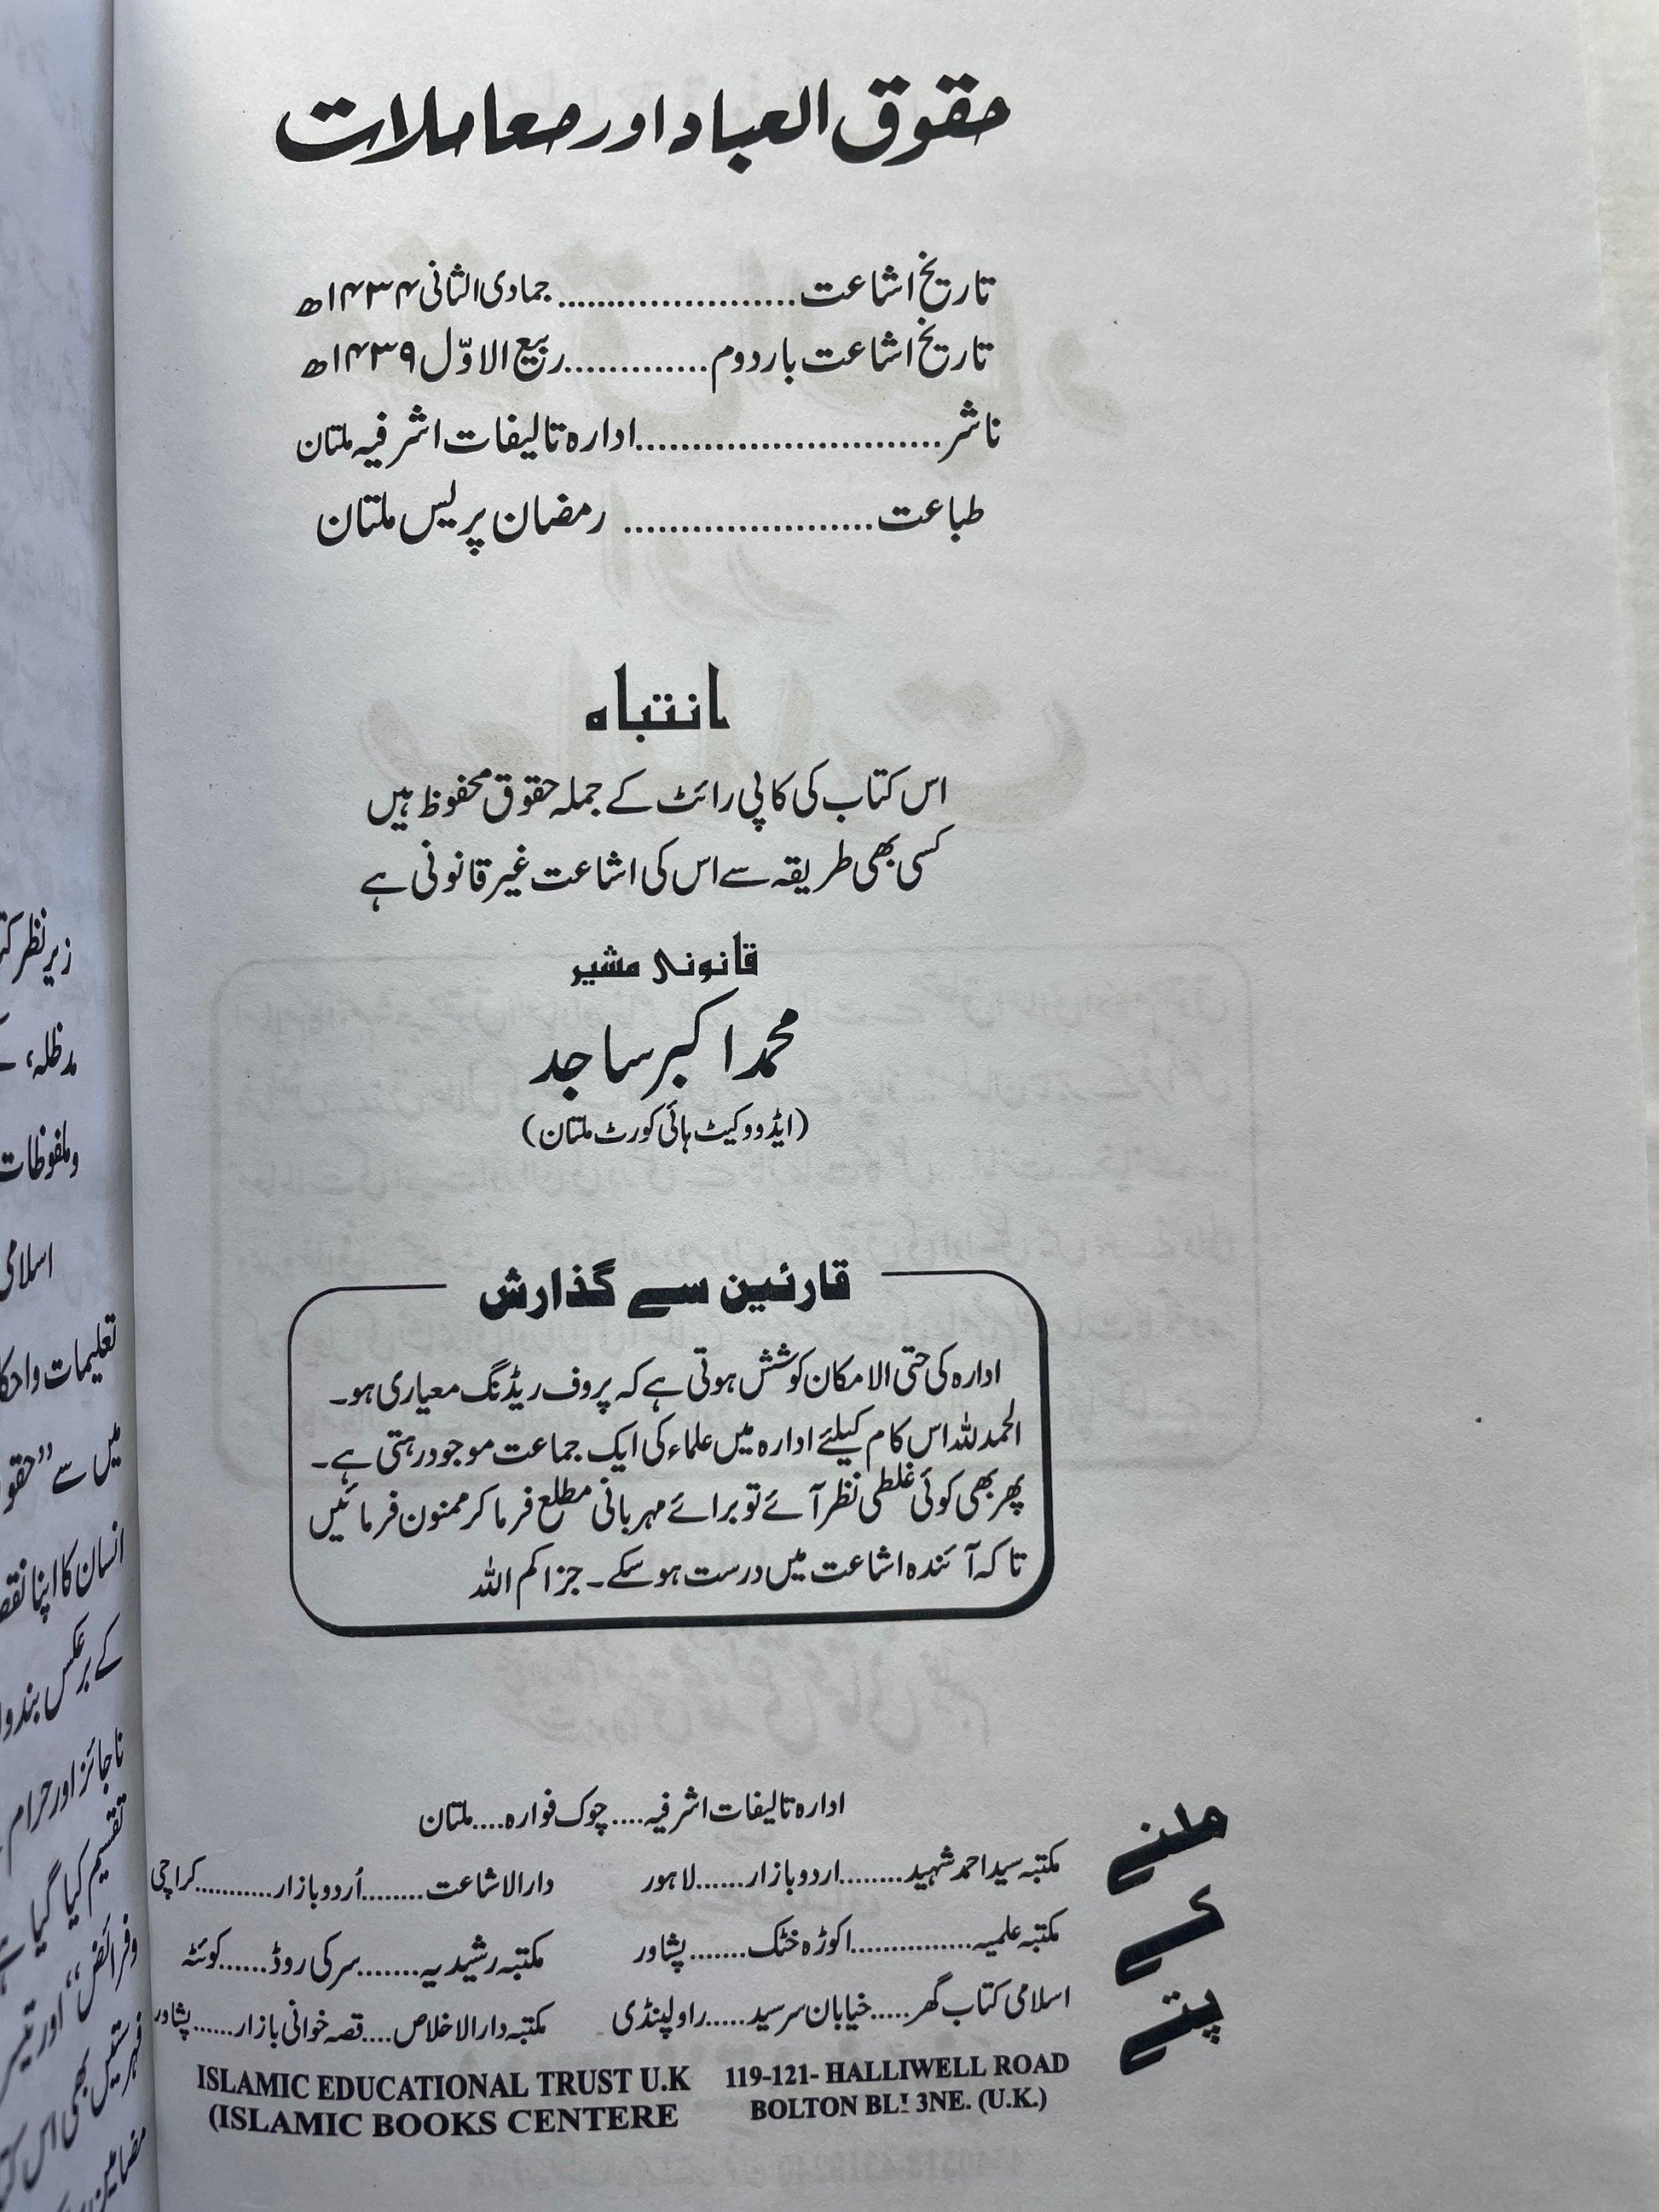 حقوق العباد اور معاملات
تاریخ اشاعت......................جمادی الثانی ۱۴۳۴ھ
تاریخ اشاعت بار دوم.............ربیع الاوّل ۱۴۳۹ھ
ناشر............................ادارہ تالیفات اشرفیہ ملتان
طباعت....................... رمضان پریس ملتان
انتباہ
اس کتاب کی کاپی رائٹ کے جملہ حقوق محفوظ ہیں
کسی بھی طریقہ سے اس کی اشاعت غیر قانونی ہے
قانونی مشیر
محمد اکبر ساجد
(ایڈووکیٹ ہائی کورٹ ملتان)
قارئین سے گذارش
ادارہ کی حتی الامکان کوشش ہوتی ہے کہ پروف ریڈنگ معیاری ہو۔
الحمدللہ اس کام کیلئے ادارہ میں علماء کی ایک جماعت موجود رہتی ہے۔
پھر بھی کوئی غلطی نظر آئے تو برائے مہربانی مطلع فرما کر ممنون فرمائیں
تاکہ آئندہ اشاعت میں درست ہو سکے۔ جزاکم اللہ
ملنے کے پتے
ادارہ تالیفات اشرفیہ....چوک فوارہ....ملتان
مکتبہ سید احمد شہید........اردو بازار......لاہور
دارالاشاعت........اُردو بازار..........کراچی
مکتبہ علمیہ..............اکوڑہ خٹک.......پشاور
مکتبہ رشیدیہ.......سرکی روڈ......کوئٹہ
اسلامی کتاب گھر.....خیابان سرسید.....راولپنڈی
مکتبہ دارالاخلاص....قصہ خوانی بازار......پشاور
ISLAMIC EDUCATIONAL TRUST U.K
(ISLAMIC BOOKS CENTERE
119-121- HALLIWELL ROAD
BOLTON BL! 3NE. (U.K.)
زیر نظر
مدظلہ،
وملفوظات
اسلامی
تعلیمات و
میں سے "
انسان کا اپنا
کے برعکس
ناجائز اور حرام
تقسیم کیا گیا
وفرائض" اور
فہرستیں بھی اس